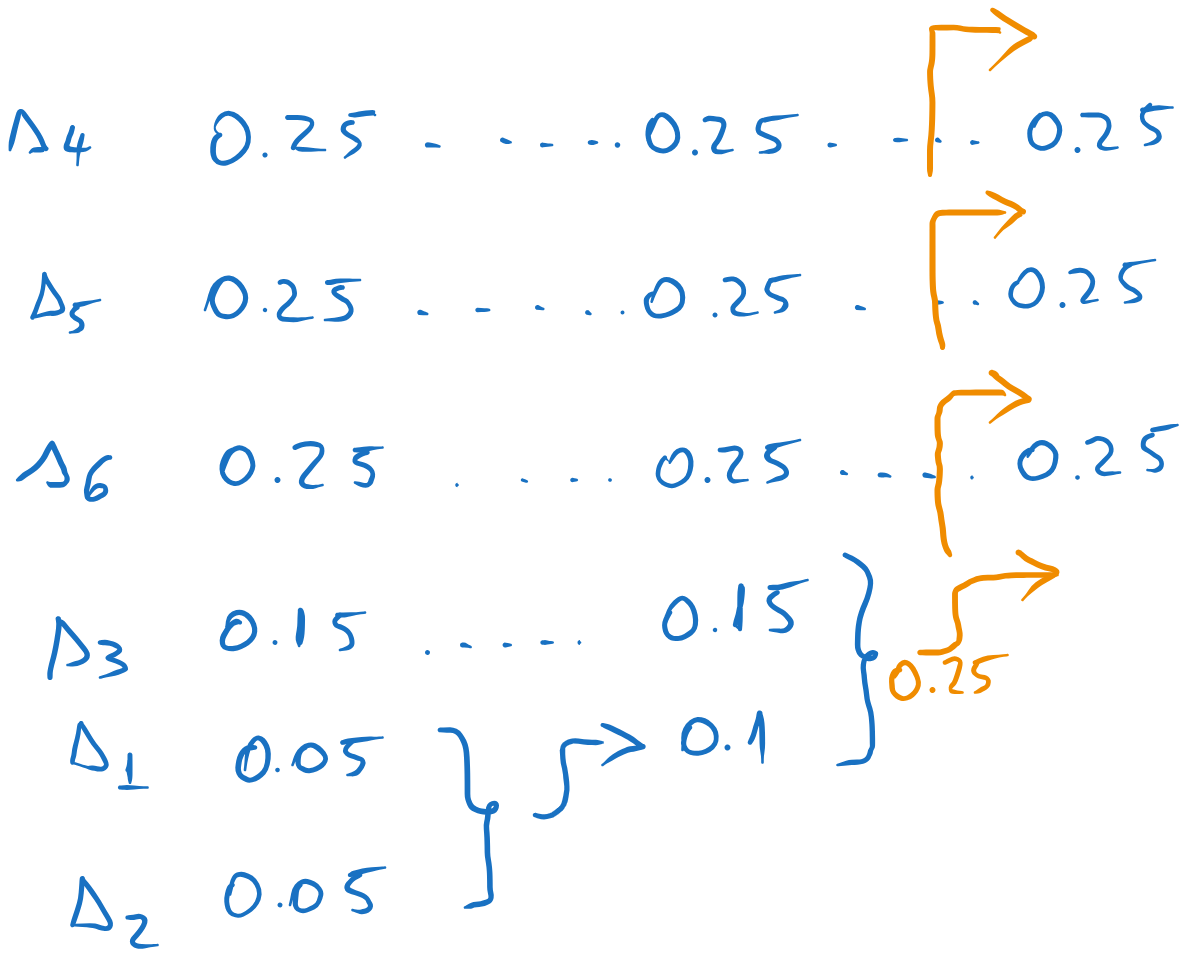 Δ4 0.25 . - - - . . 0.25 . - . - . 0.25
Δ5 0.25 . - - . . 0.25 . - . 0.25
Δ6 0.25 . . - . 0.25 . - - . 0.25
Δ3 0.15 . - - - . 0.15
0.25
Δ1 0.05 0.1
Δ2 0.05